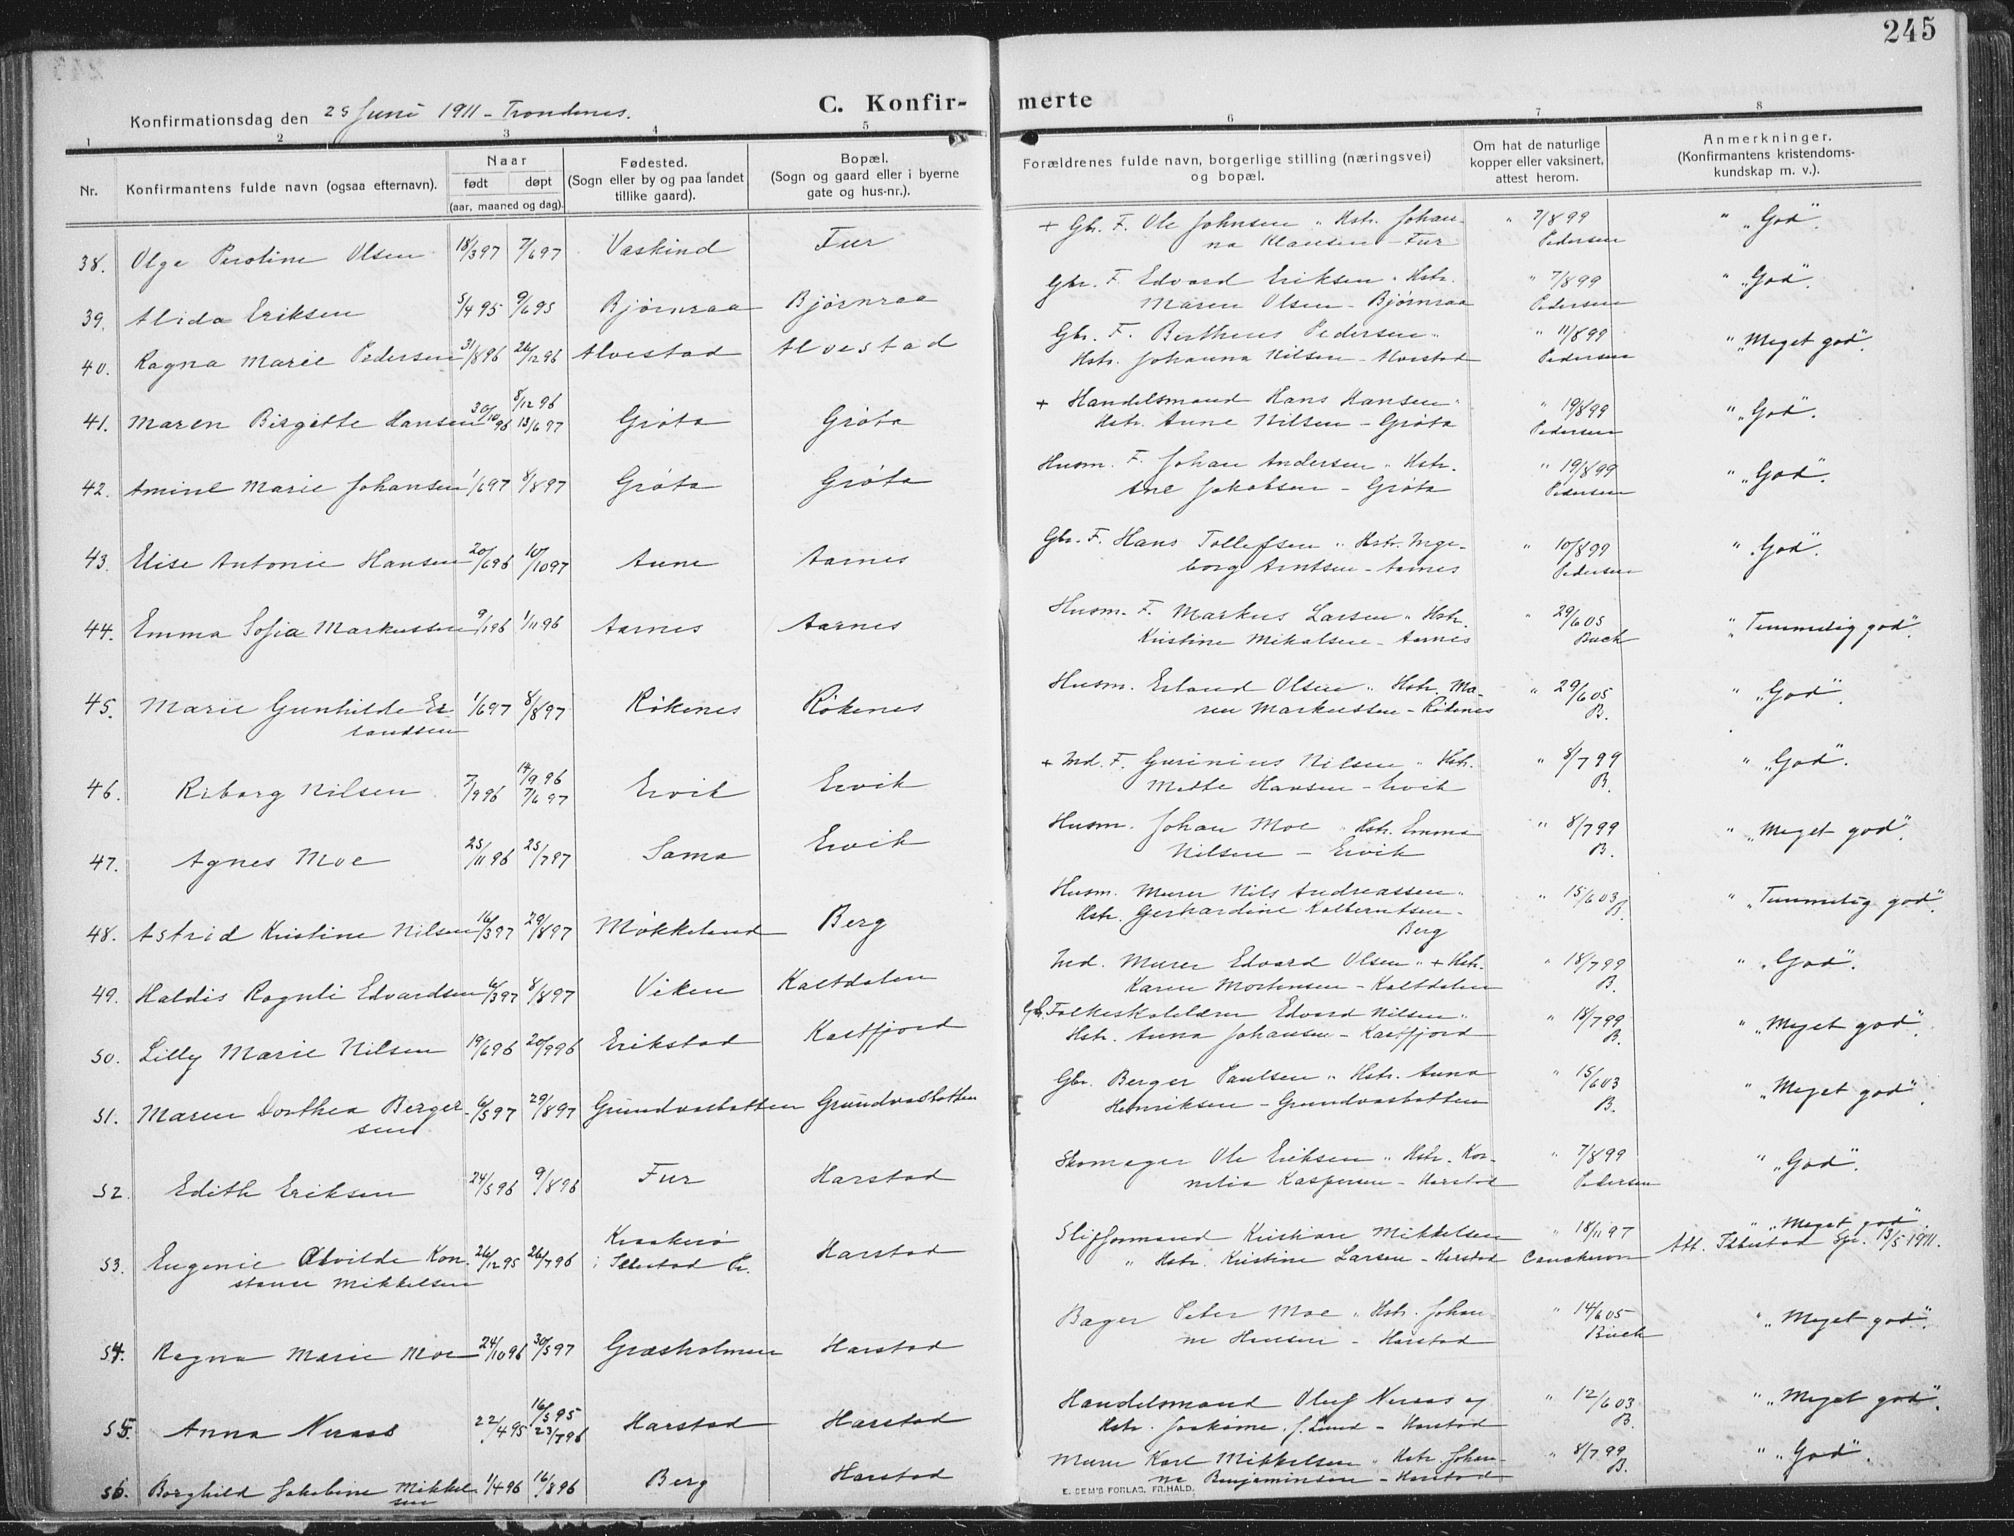 245
Konfirmationsdag den 25 Juni 1911 - Trondenes.
C. Konfirmerte
1 2 3 4 5 6 7 8
Nr. | Konfirmantens fulde navn (ogsaa efternavn). | Naar født døpt (aar, maaned og dag). | Fødested. (Sogn eller by og paa landet tillike gaard). | Bopæl. (Sogn og gaard eller i byerne gate og hus-nr.). | Forældrenes fulde navn, borgerlige stilling (næringsvei) og bopæl. | Om hat de naturlige kopper eller vaksinert, attest herom. | Anmerkninger. (Konfirmantens kristendomskundskap m. v.).
38. Olga Peroline Olsen 18/3 97 7/6 97 Vaskind Fur + Gbr. F. Ole Johnsen " Hstr. Johan-
na Klausen - Fur " 7/8 99 Pedersen " "God".
39. Alida Eriksen 5/4 95 9/6 95 Bjørnraa Bjørnraa Gbr. F. Edvard Eriksen " Hstr.
Maren Olsen - Bjørnraa " 7/8 99 Pedersen " "God".
40. Ragna Marie Pedersen 31/8 96 26/12 96 Alvestad Alvestad Gbr. F. Bertheus Pedersen "
Hstr. Johanna Nilsen - Alvestad " 11/8 99 Pedersen " "Meget god".
41. Maren Birgitte Hansen 30/10 96 8/12 96 13/6 97 Grøta Grøta + Handelsmand Hans Hansen "
Hstr. Anne Nilsen - Grøta " 19/8 99 Pedersen " "God".
42. Amine Marie Johansen 1/6 97 8/8 97 Grøta Grøta Husm. F. Johan Andersen " Hstr.
Ane Jakobsen - Grøta " 19/8 99 Pedersen " "God".
43. Elise Antonie Hansen 20/6 96 10/10 97 Aune Aarnes Gbr. F. Hans Tollefsen " Hstr. Inge-
borg Arntsen - Aarnes " 10/8 99 Pedersen " "God".
44. Emma Sofia Markussen 9/1 96 1/11 96 Aarnes Aarnes Husm. F. Markus Larsen " Hstr.
Kristine Mikalsen - Aarnes " 29/6 05 Buch " "Temmelig god".
45. Marie Gunhilde Er
landsen 1/6 97 8/8 97 Røkenes Røkenes Husm. Erland Olsen " Hstr. Ma-
ren Markussen - Røkenes " 29/6 05 B. " "God".
46. Riborg Nilsen 7/9 96 14/9 96 7/6 97 Ervik Ervik + Ind. F. Gurinius Nilsen " Hstr.
Mette Hansen - Ervik " 8/7 99 B. " "God".
47. Agnes Moe 25/11 96 25/7 97 Sama Ervik Husm. Johan Moe " Hstr. Emma
Nilsen - Ervik " 8/7 99 B. " "Meget god".
48. Astrid Kristine Nilsen 16/3 97 29/8 97 Møkkeland Berg Husm. Murer Nils Andreassen "
Hstr. Gerhardine Kolberntsen -
Berg " 15/6 03 B. " "Temmelig god".
49. Haldis Ragnli Edvardsen 6/3 97 8/8 97 Viken Kaltdalen Ind. Murer Edvard Olsen " + Hstr.
Karen Mortensen - Kaltdalen " 18/7 99 B. " "God".
50. Lilly Marie Nilsen 19/6 96 20/9 96 Erikstad Kastfjord Gbr. Folkeskolelærer Edvard Nilsen "
Hstr. Anna Johansen - Kastfjord " 18/7 99 B. " "Meget god".
51. Maren Dorthea Berger-
sen 6/5 97 29/8 97 Grundvasbotten Grundvasbotten Gbr. Berger Paulsen " Hstr. Anna
Henriksen - Grundvasbotten " 15/6 03 B. " "Meget god".
52. Edith Eriksen 24/5 96 9/8 96 Fur Harstad Skomager Ole Eriksen " Hstr. Kor-
nelia Kaspersen - Harstad " 7/8 99 Pedersen " "God".
53. Eugenie Alvilde Kon-
stance Mikkelsen 26/12 95 26/7 96 Kraakerø
i Ibbestad Harstad Kristian Mikkelsen
" Hstr. Kristine Larsen - Harstad " 18/11 97 " "Meget god"
Att. Ibbestad Spr. 13/5 1911.
54. Ragna Marie Moe 24/10 96 30/5 97 Græsholmen Harstad Bager Peter Moe " Hstr. Johan-
ne Hansen - Harstad " 14/6 05 Buch " "Meget god".
55. Anna Neraas 22/4 95 16/5 95 23/7 96 Harstad Harstad Handelsmand Oluf Neraas og
Hstr. Joakime f. Lund - Harstad " 12/6 03 B. " "Meget god".
56. Borghild Jakobine Mikkel
sen 1/4 96 16/8 96 Berg Harstad Murer Karl Mikkelsen " Hstr. Johan-
ne Benjaminsen - Harstad " 8/7 99 B. " "God".
E. SEM'S FORLAG, FR.HALD.